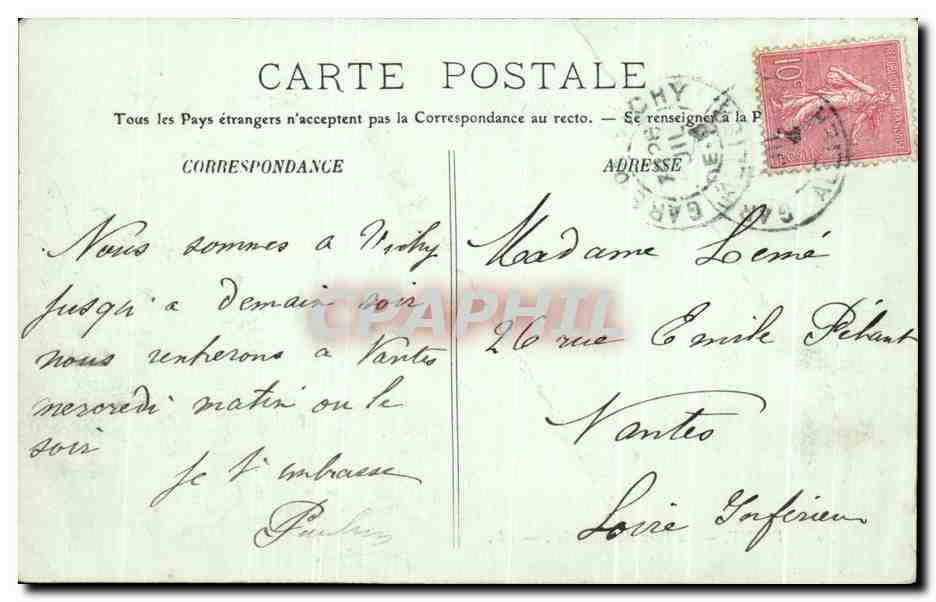 CARTE POSTALE
Tous les Pays étrangers n'acceptent pas la Correspondance au recto. — Se renseigner à la P
CORRESPONDANCE
Nous sommes a Vichy
jusqu'a demain soir
nous rentrerons a Nantes
mercredi matin ou le
soir
Je t'embrasse
ADRESSE
Madame Lemé
26 rue Emile Péhant
Nantes
Loire Inférieu
CPAPHIL